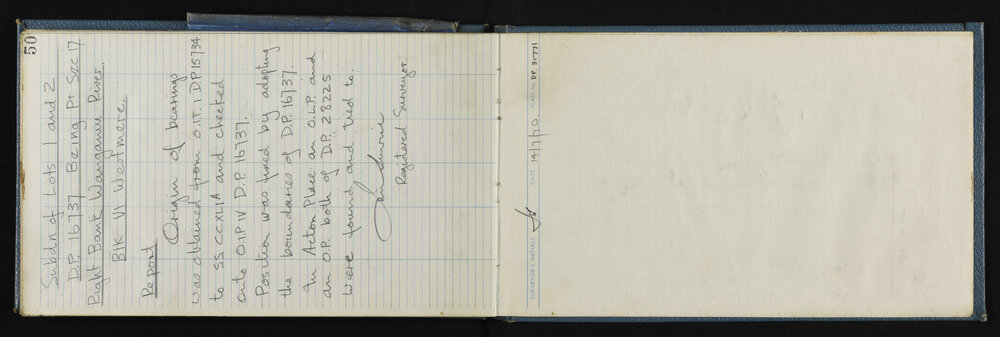 50
Subdn of Lots 1 and 2
D.P. 16737 Being Pt Sec 17
Right Bank Wanganui River
Blk VI Westmere.
Report
Origin of bearings
was obtained from O.IT. I DP 15734
to SS CCXLIA and checked
onto O.I.P IV D.P. 16737.
Position was fixed by adopting
the boundaries of D.P. 16737.
In Acton Place an O.L.P. and
an O.P. both of D.P. 28225
were found and tied to.
Registered Surveyor.
SURVEYOR'S INITIALS
DATE 14/7/70
PLAN No. DP. 31771